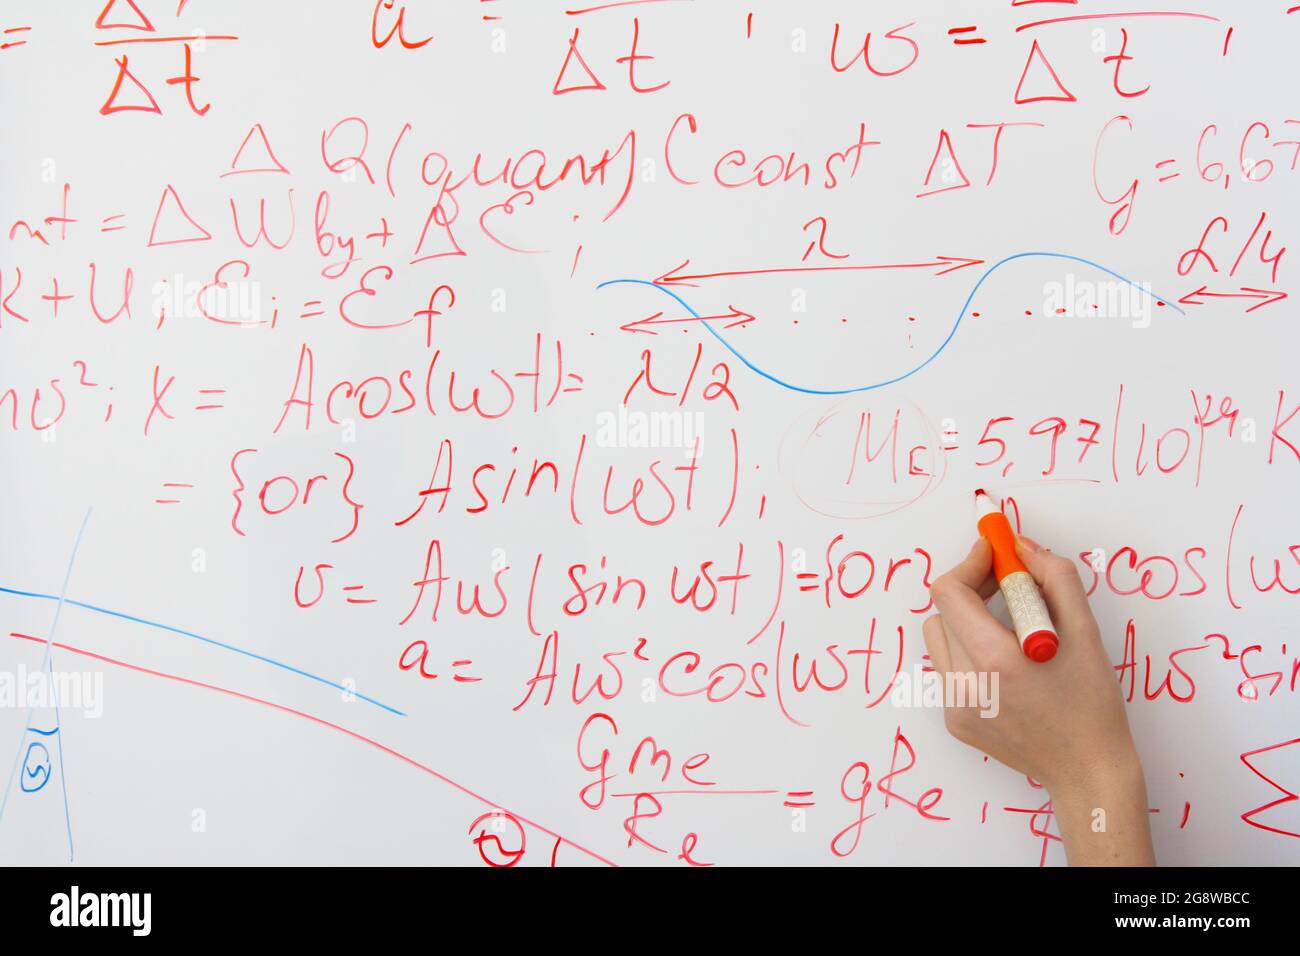 = Δ / Δt a = / Δt , ω = Δ / Δt ,
ΔQ(quant) C const ΔT G = 6,67
nt = ΔW by + ΔE ;
λ
L/4
K + U ; Ei = Ef
mv² ; x = A cos(wt) = λ/2
= {or} A sin(wt) ;
ME = 5,97 (10)²⁴ K
v = Aw (sin wt) = {or} cos(w
a = Aw² cos(wt) = Aw² sin
G me / Re = g Re ; ;
a alamy
alamy
Image ID: 2G8WBCC
www.alamy.com